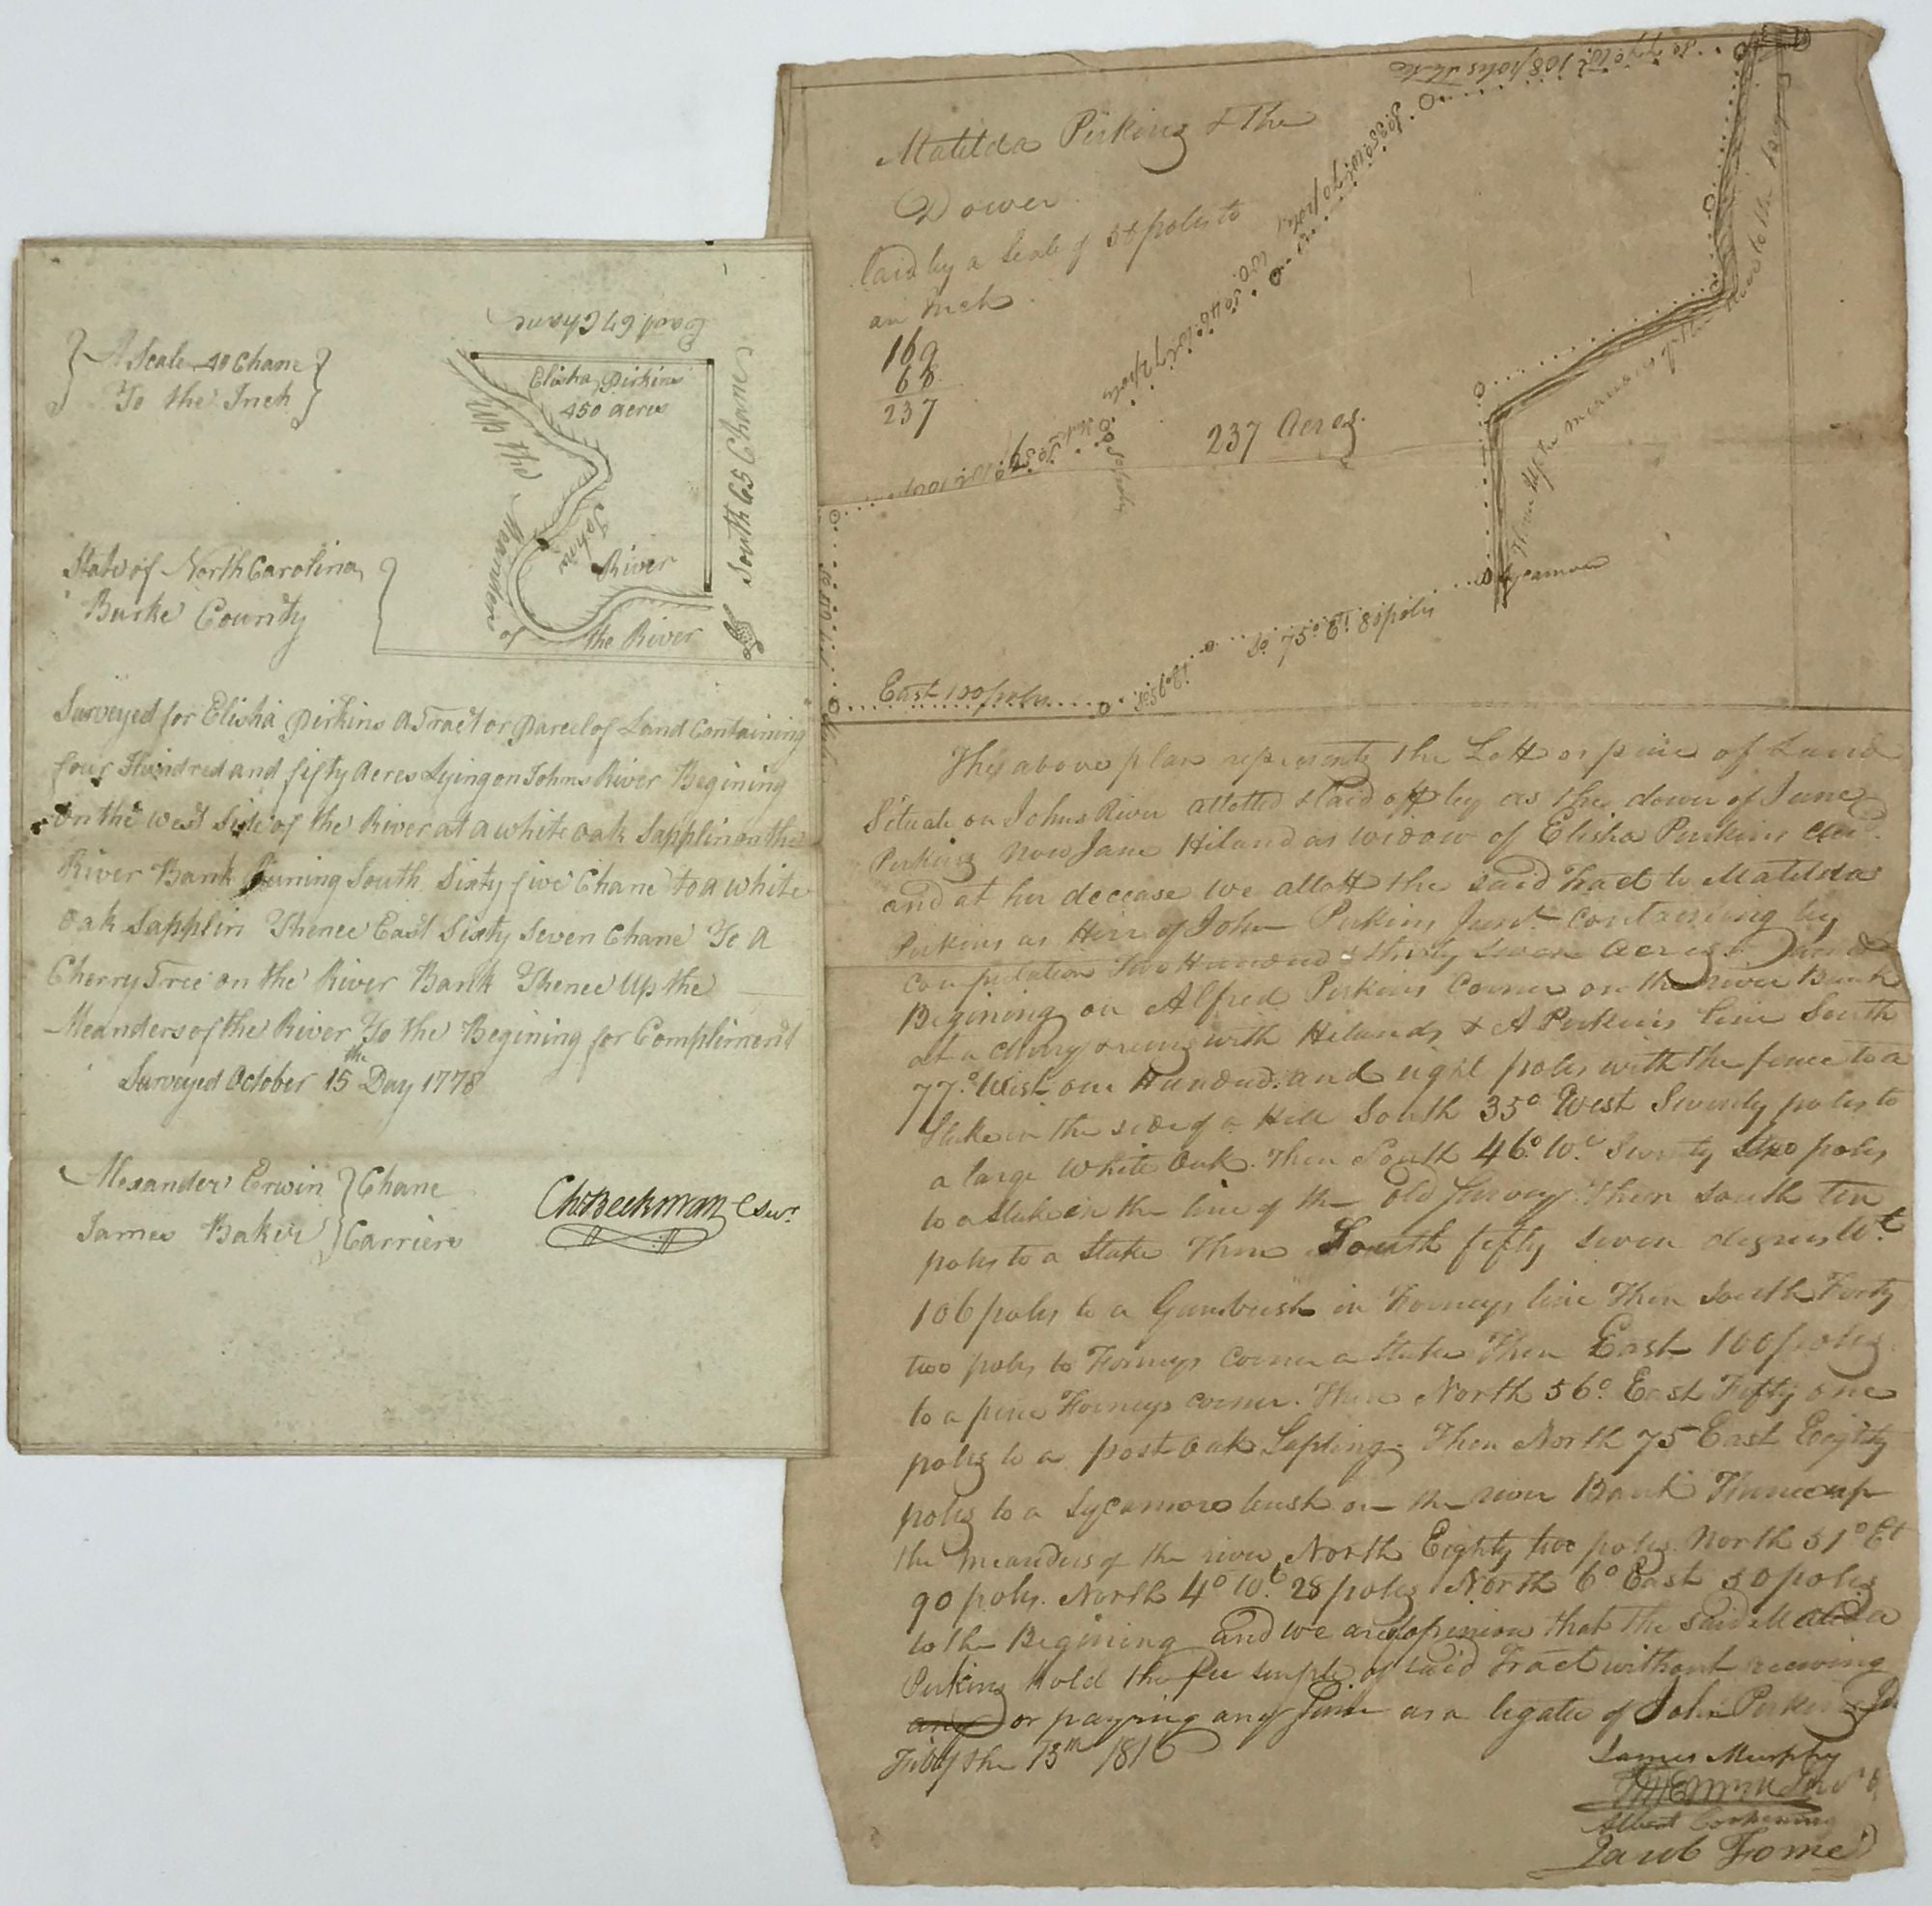 A Scale 40 Chane
To the Inch
East 67 Chane
Elisha Pirkins
450 acres
South 65 Chane
up the Meanders of the River
Johns River
State of North Carolina
Burke County
Surveyed for Elisha Pirkins a Tract or Parcel of Land Containing
four Hundred and fifty Acres Lying on Johns River Begining
on the west Side of the River at a white oak Sapplin on the
River Bank Runing South Sixty five Chane to a white
Oak Sapplin Thence East Sixty Seven Chane To a
Cherry Tree on the River Bank Thence Up the
Meanders of the River To the Begining for Compliment
Surveyed October 15th Day 1778
Alexander Erwin
James Baker
Chane
Carriers
Ch Beekman C Sur.
Matilda Perkins & the
Dower
laid by a Scale of 50 poles to
an Inch
169
68
237
237 Acres.
So 77° W 108 poles
So 35° W 70 poles
So 46° W 72 poles
So 10 poles
East 100 poles
No 56° Et
So 75° Et 80 poles
Sycamore
Thence Up the meanders of the River to the Begining
The above plan represents the Lott or piece of Land
Situate on Johns River allotted & laid off by as the dower of Jane
Perkins now Jane Hiland as widow of Elisha Perkins
and at her decease we allott the said Tract to Matilda
Perkins as Heir of John Perkins Junr. containing by
computation Two Hundred & thirty seven acres
Begining on Alfred Perkins Corner on the river Bank
at a cherry runing with Hilands & A Perkins line South
77° West one Hundred and eight poles with the fence to a
Stake in the side of a Hill South 35° West Seventy poles to
a large White Oak. Then South 46° Wt Seventy two poles
to a stake in the line of the old Survey Then South ten
poles to a Stake Then South fifty seven degrees Wt
106 poles to a Gumbush in Forneys line Then South Forty
two poles to Forneys Corner a stake Then East 100 poles
to a pine Forneys corner. Then North 56° East Fifty one
poles to a post oak Sapling. Then North 75 East Eeighty
poles to a Sycamore bush on the river Bank Thence up
the meanders of the river North Eighty two poles North 51° Et
90 poles. North 4° Wt 28 poles North 6° East 50 poles
to the Begining and we are of opinion that the said Matilda
Perkins hold the fee simple of said Tract without receiving
any or paying any as a legatee of John Perkins
Feby the 13th 1816
James Murphy
Albert Corpening
Jacob Forney